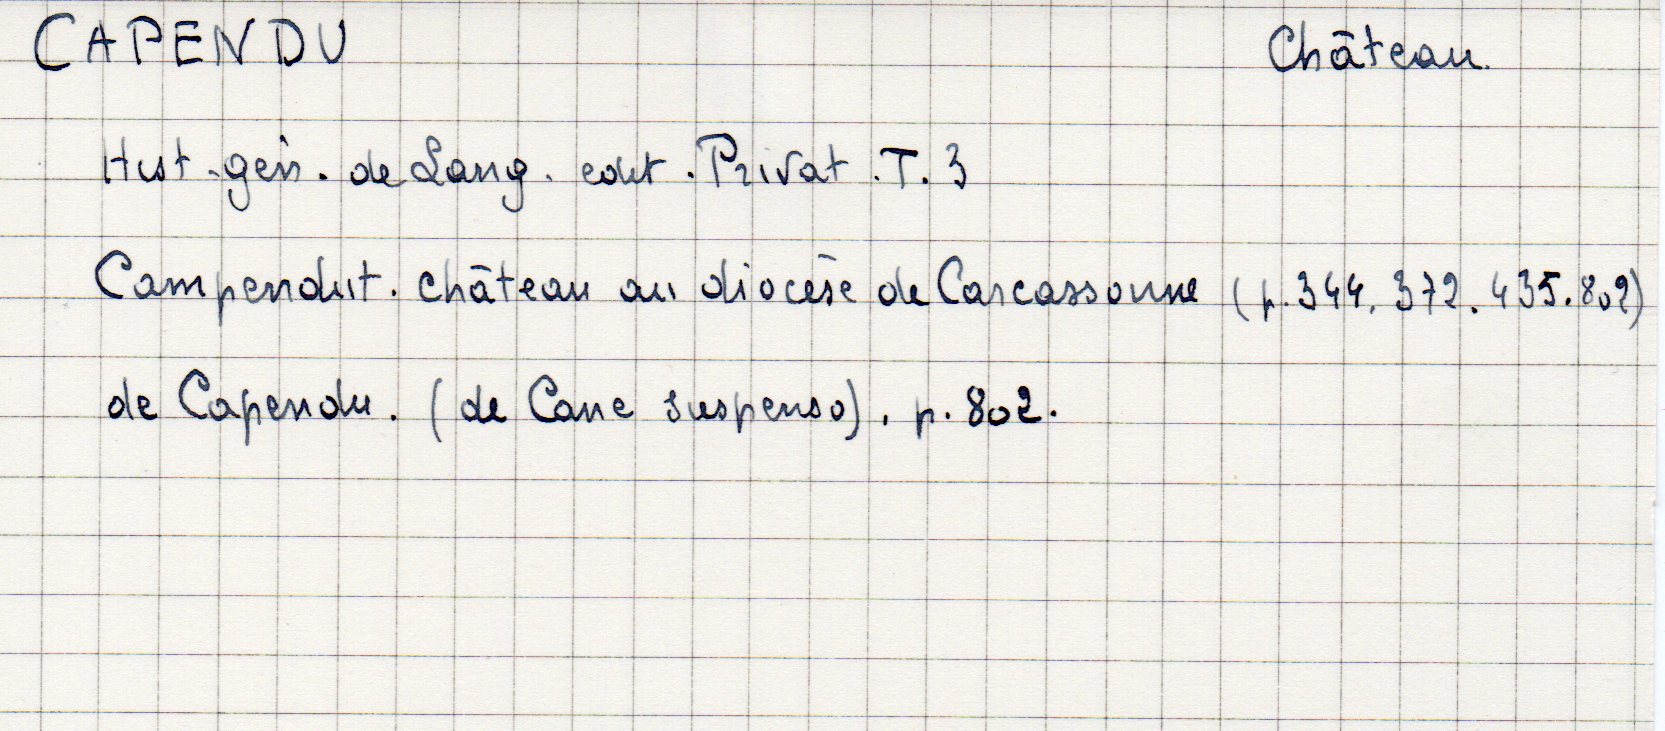 CAPENDU Château.
Hist. gén. de Lang. edit. Privat. T. 3
Campendut. château au diocèse de Carcassonne (p. 344. 372. 435. 802)
de Capendu. (de Cane suspenso), p. 802.